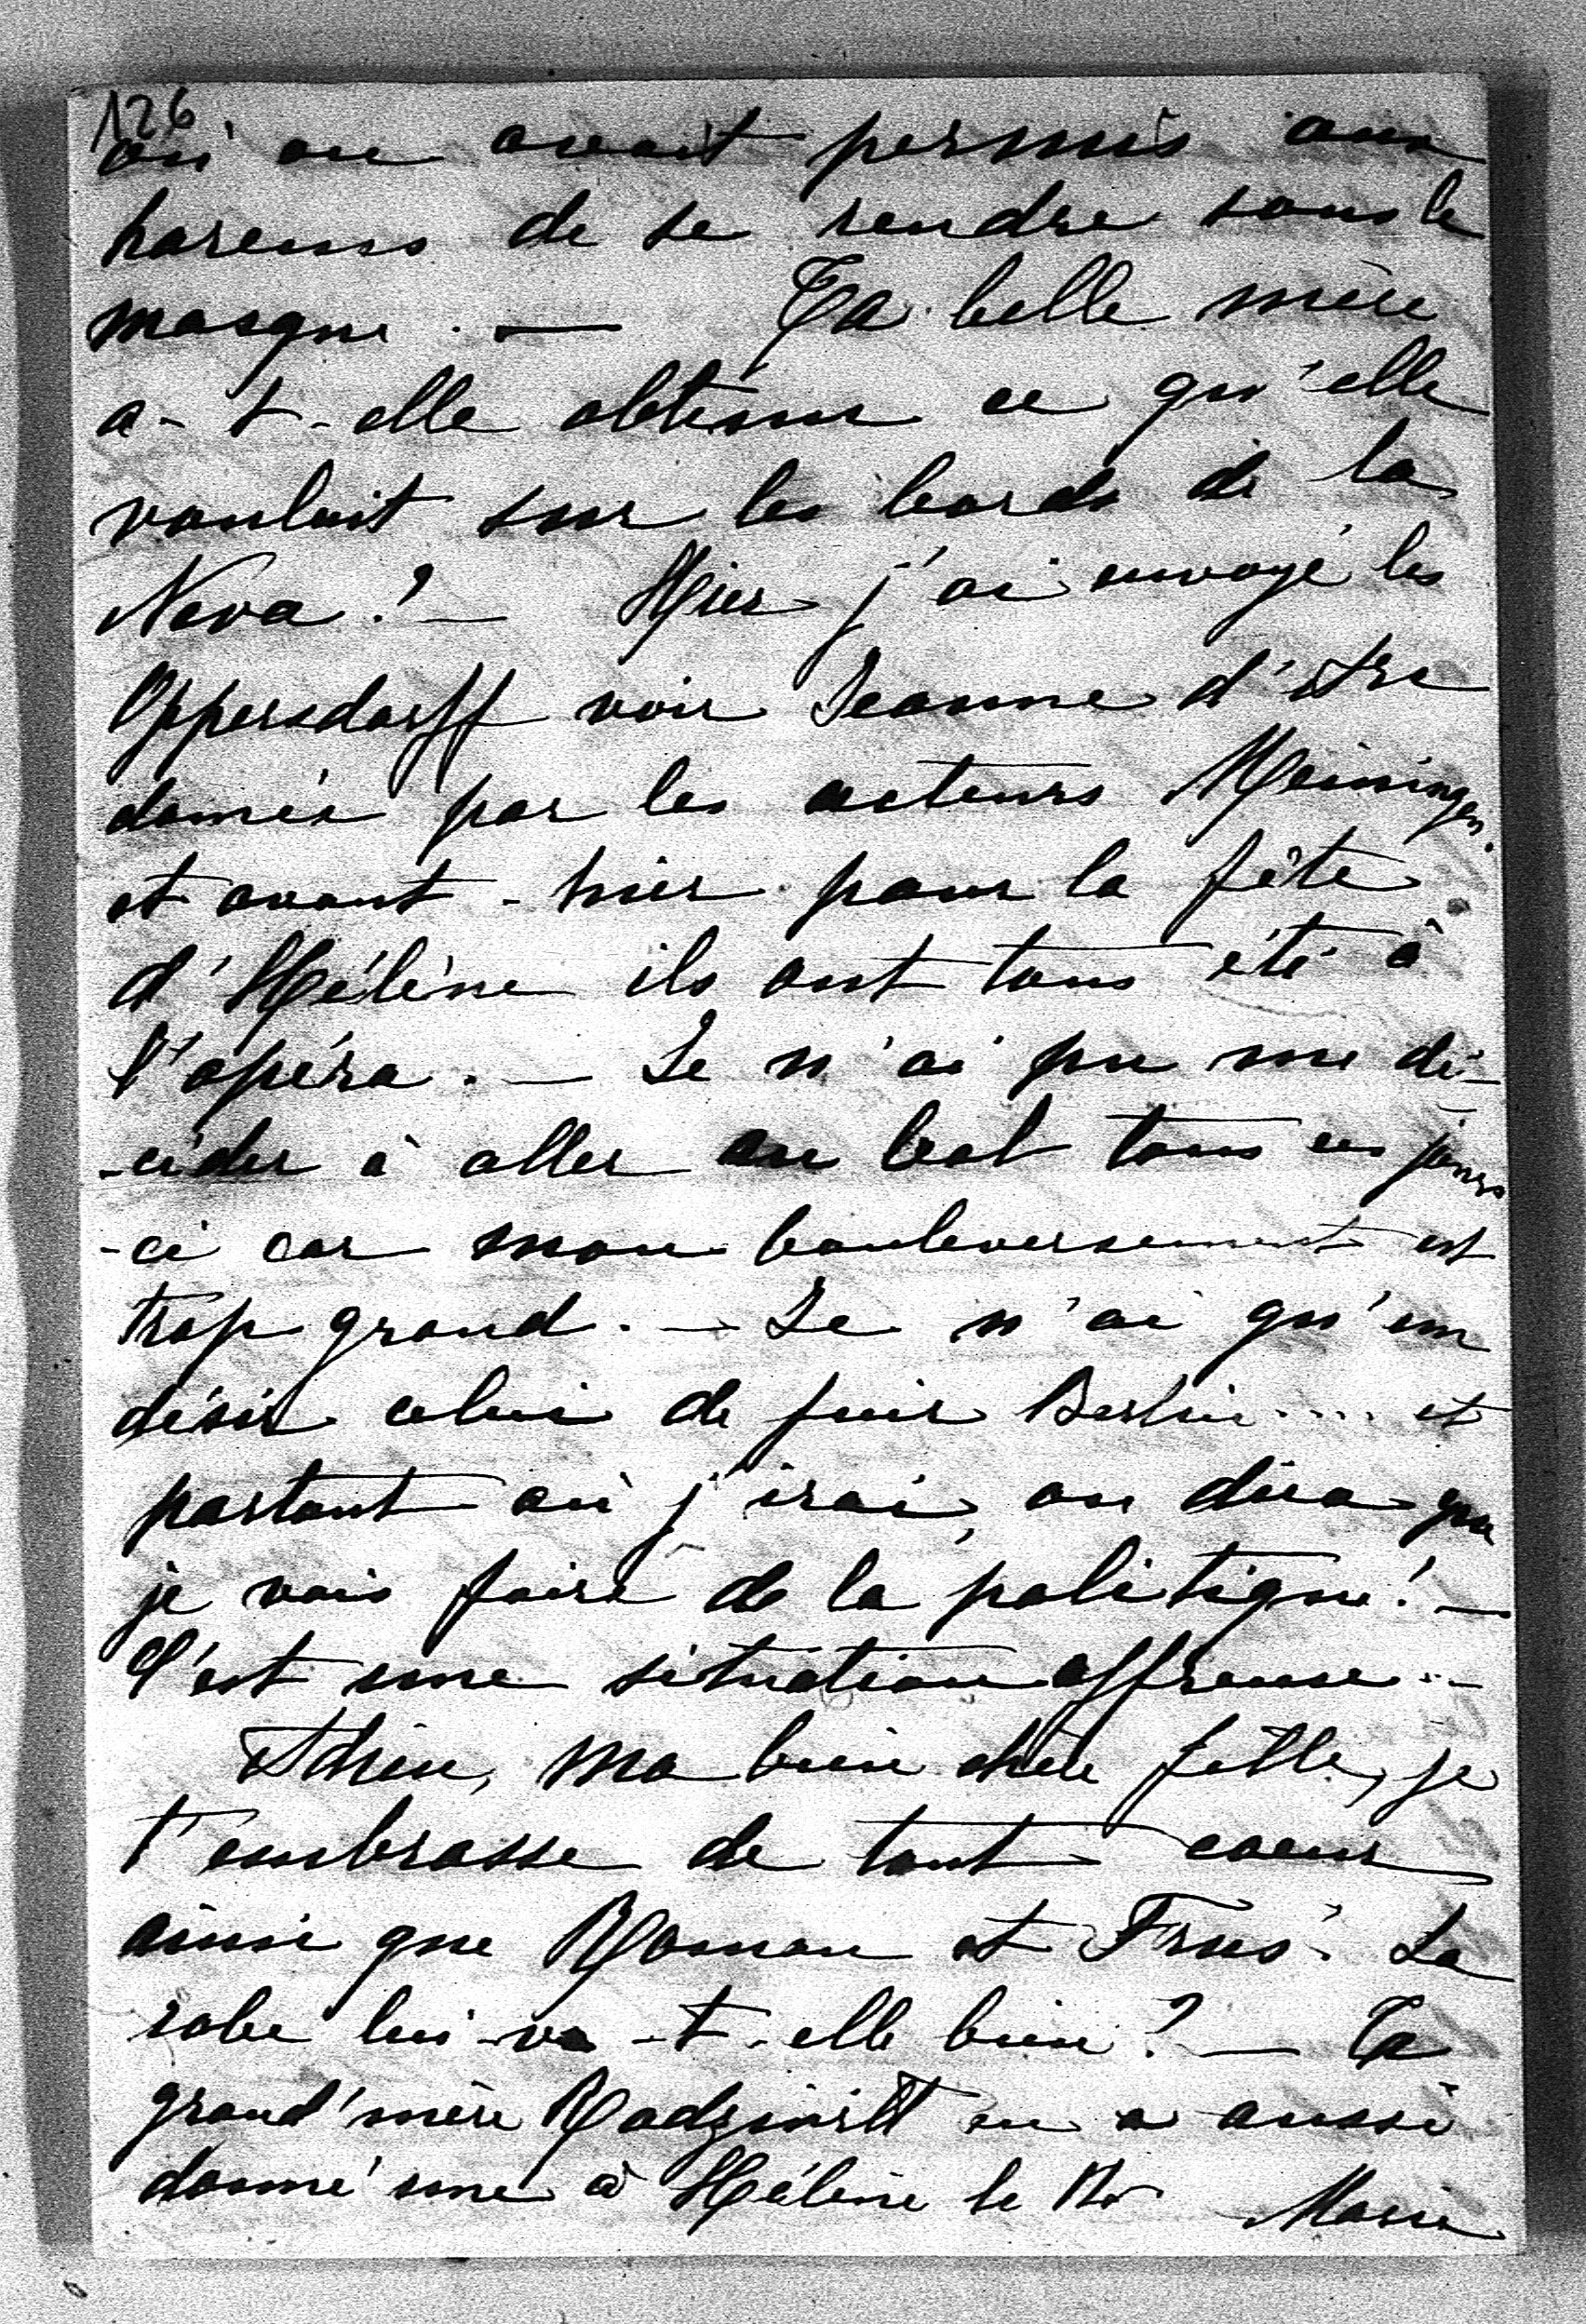 126
où on avait permis aux
harems de se rendre sous le
masque. — Ta belle mère
a-t-elle obtenu ce qu'elle
voulait sur les bords de la
Neva? — Hier j'ai envoyé les
Oppersdorff voir Jeanne d'Arc
donnée par les acteurs Meiningen.
et avant-hier pour la fête
d'Hélène ils ont tous été à
l'opéra. — Je n'ai pu me dé-
-cider à aller au bal tous ces jours
-ci car mon bouleversement est
trop grand. — Je n'ai qu'un
désir celui de fuir Berlin.... et
partout où j'irai, on dira que
je vais faire de la politique! —
C'est une situation affreuse...
Adieu, ma bien chère fille, je
t'embrasse de tout coeur
ainsi que Roman et La
robe lui va-t-elle bien? — Ta
grand'mère Radziwill en a aussi
donné une à Hélène le Marie